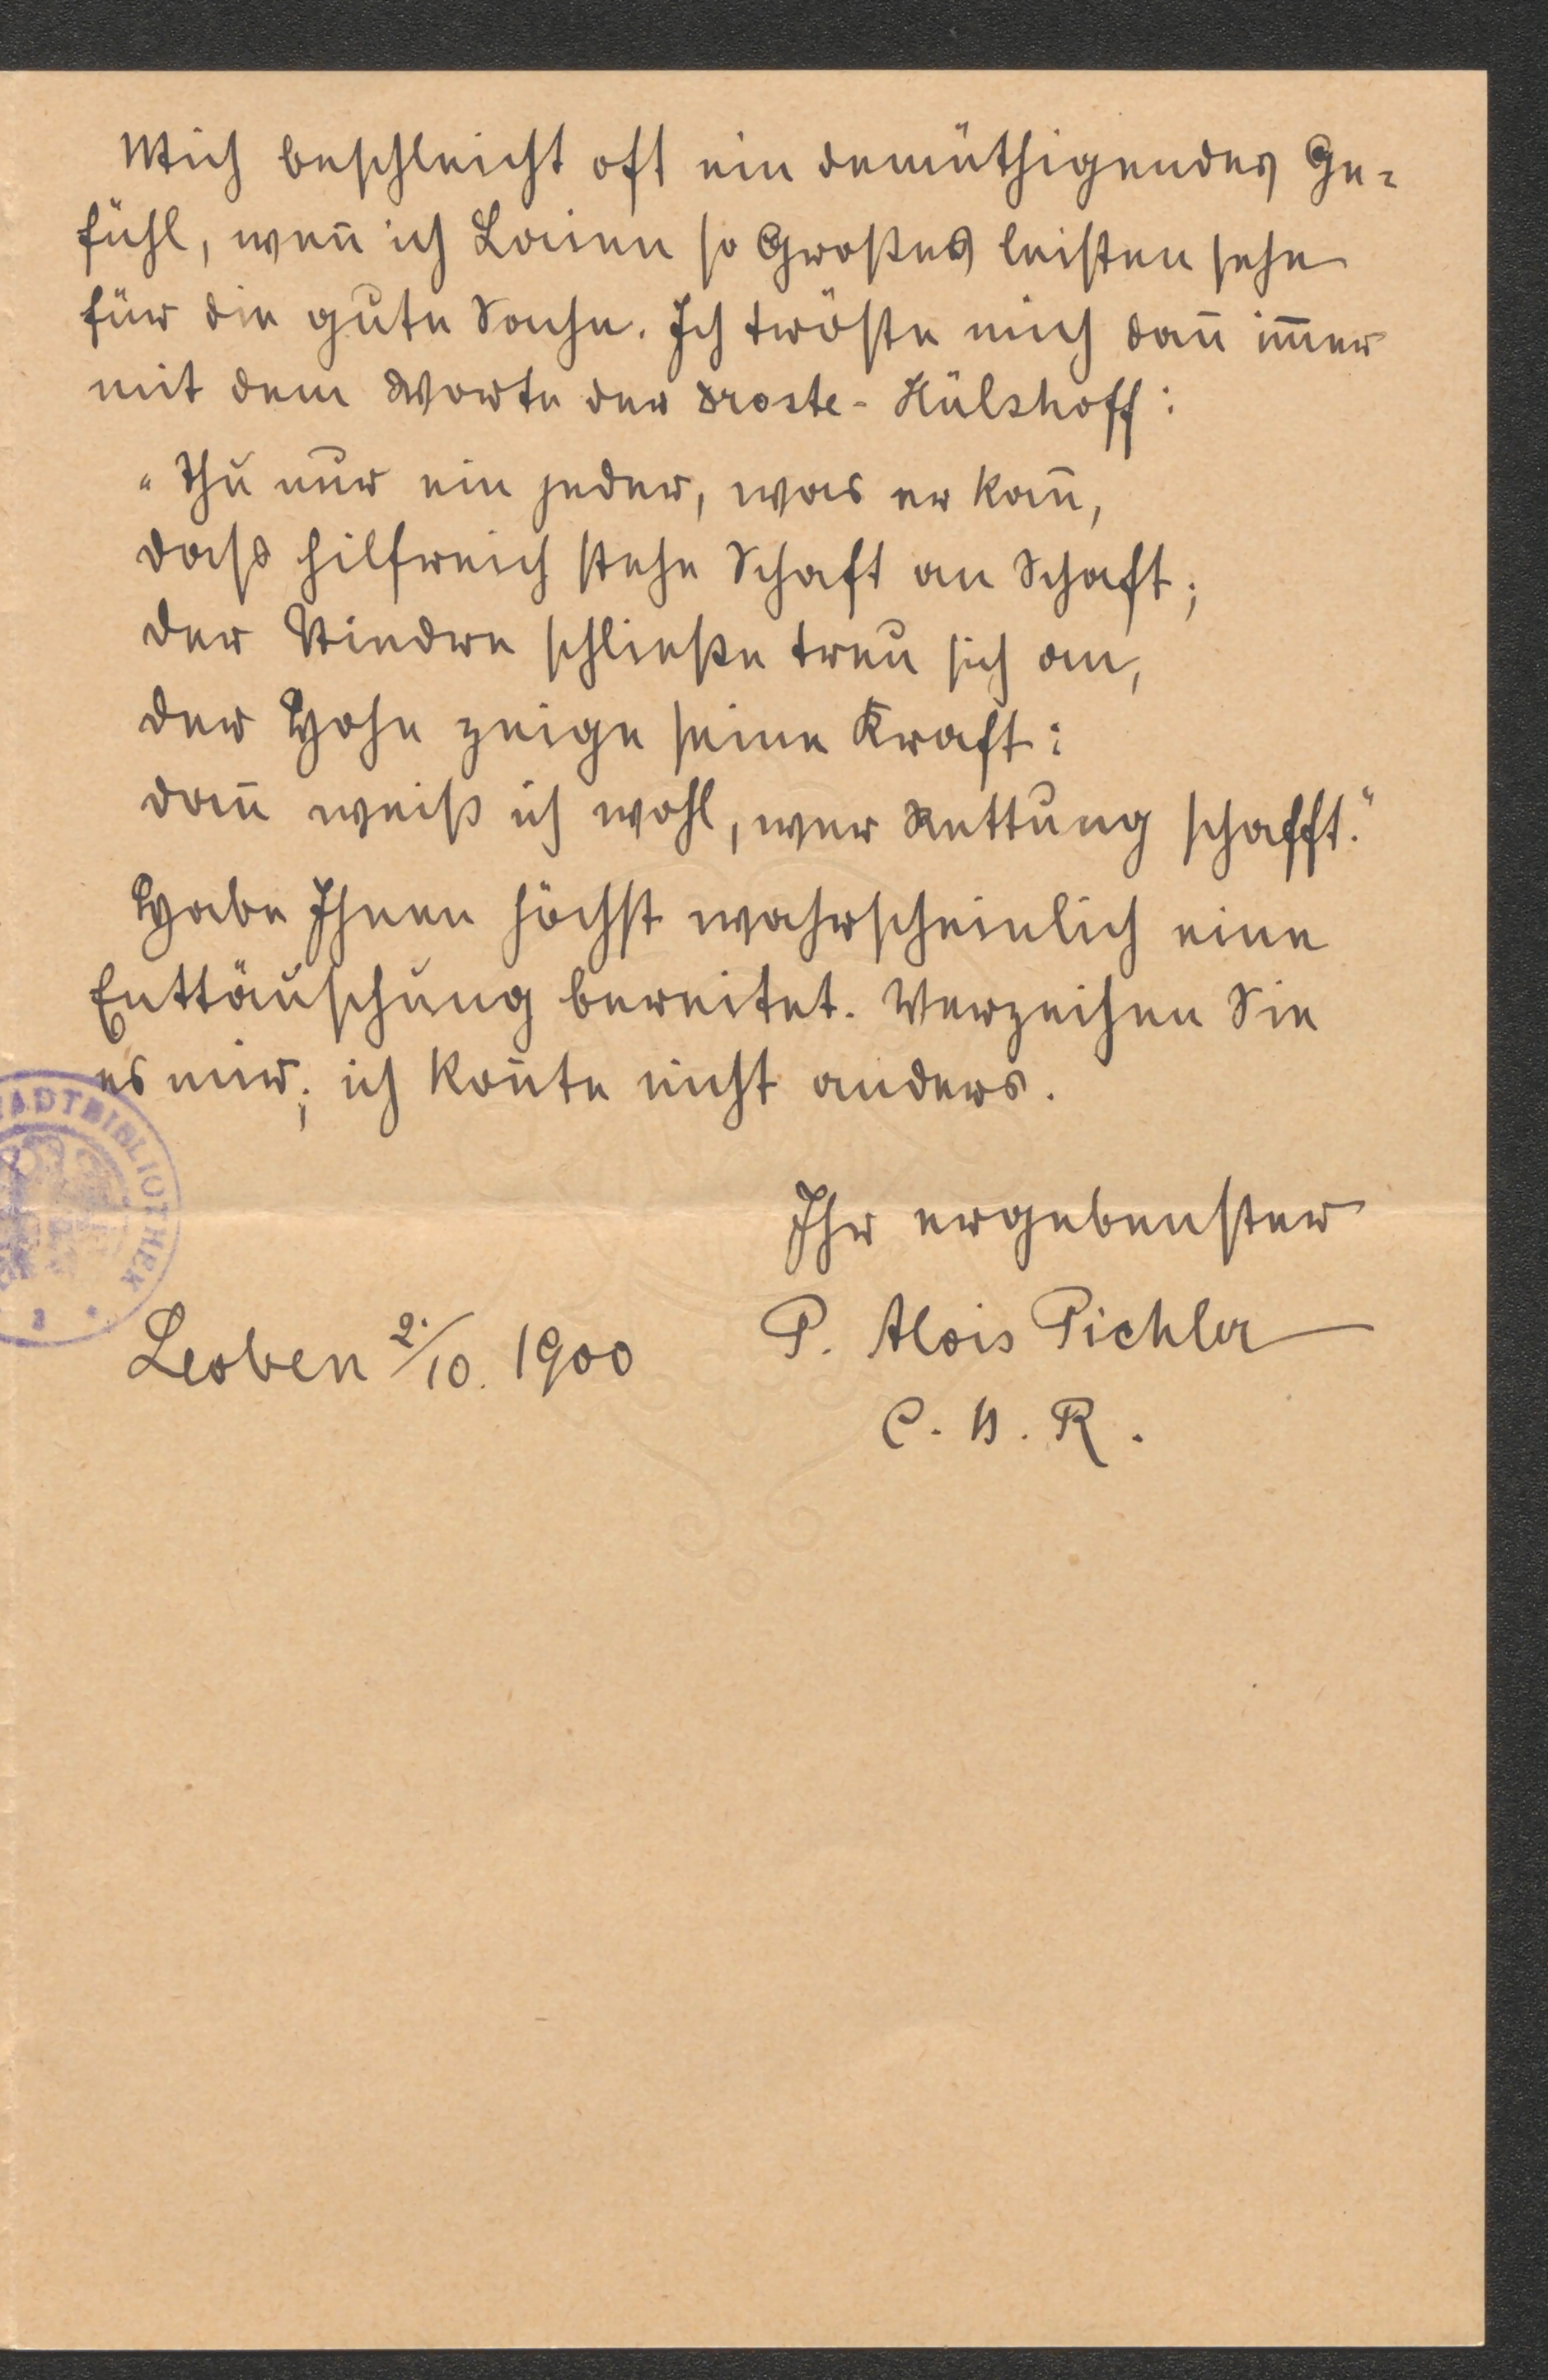 Mich beschleicht oft ein demüthigendes Ge-
fühl, wen̄ ich Laien so Großes leisten sehe
für die gute Sache. Ich tröste mich dan̄ im̄er
mit dem Worte der Droste-Hülshoff:
"Thu nur ein jeder, was er kan̄,
daß hilfreich stehe Schaft an Schaft;
der Niedre schließe treu sich an,
der Hohe zeige seine Kraft:
dan̄ weiß ich wohl, wer Rettung schafft."
Habe Ihnen höchst wahrscheinlich eine
Enttäuschung bereitet. Verzeihen Sie
es mir; ich kon̄te nicht anders.
TADTBIBLIOTHEK
Ihr ergebenster
Leoben 2./10. 1900
P. Alois Pichler
C. Ss. R.